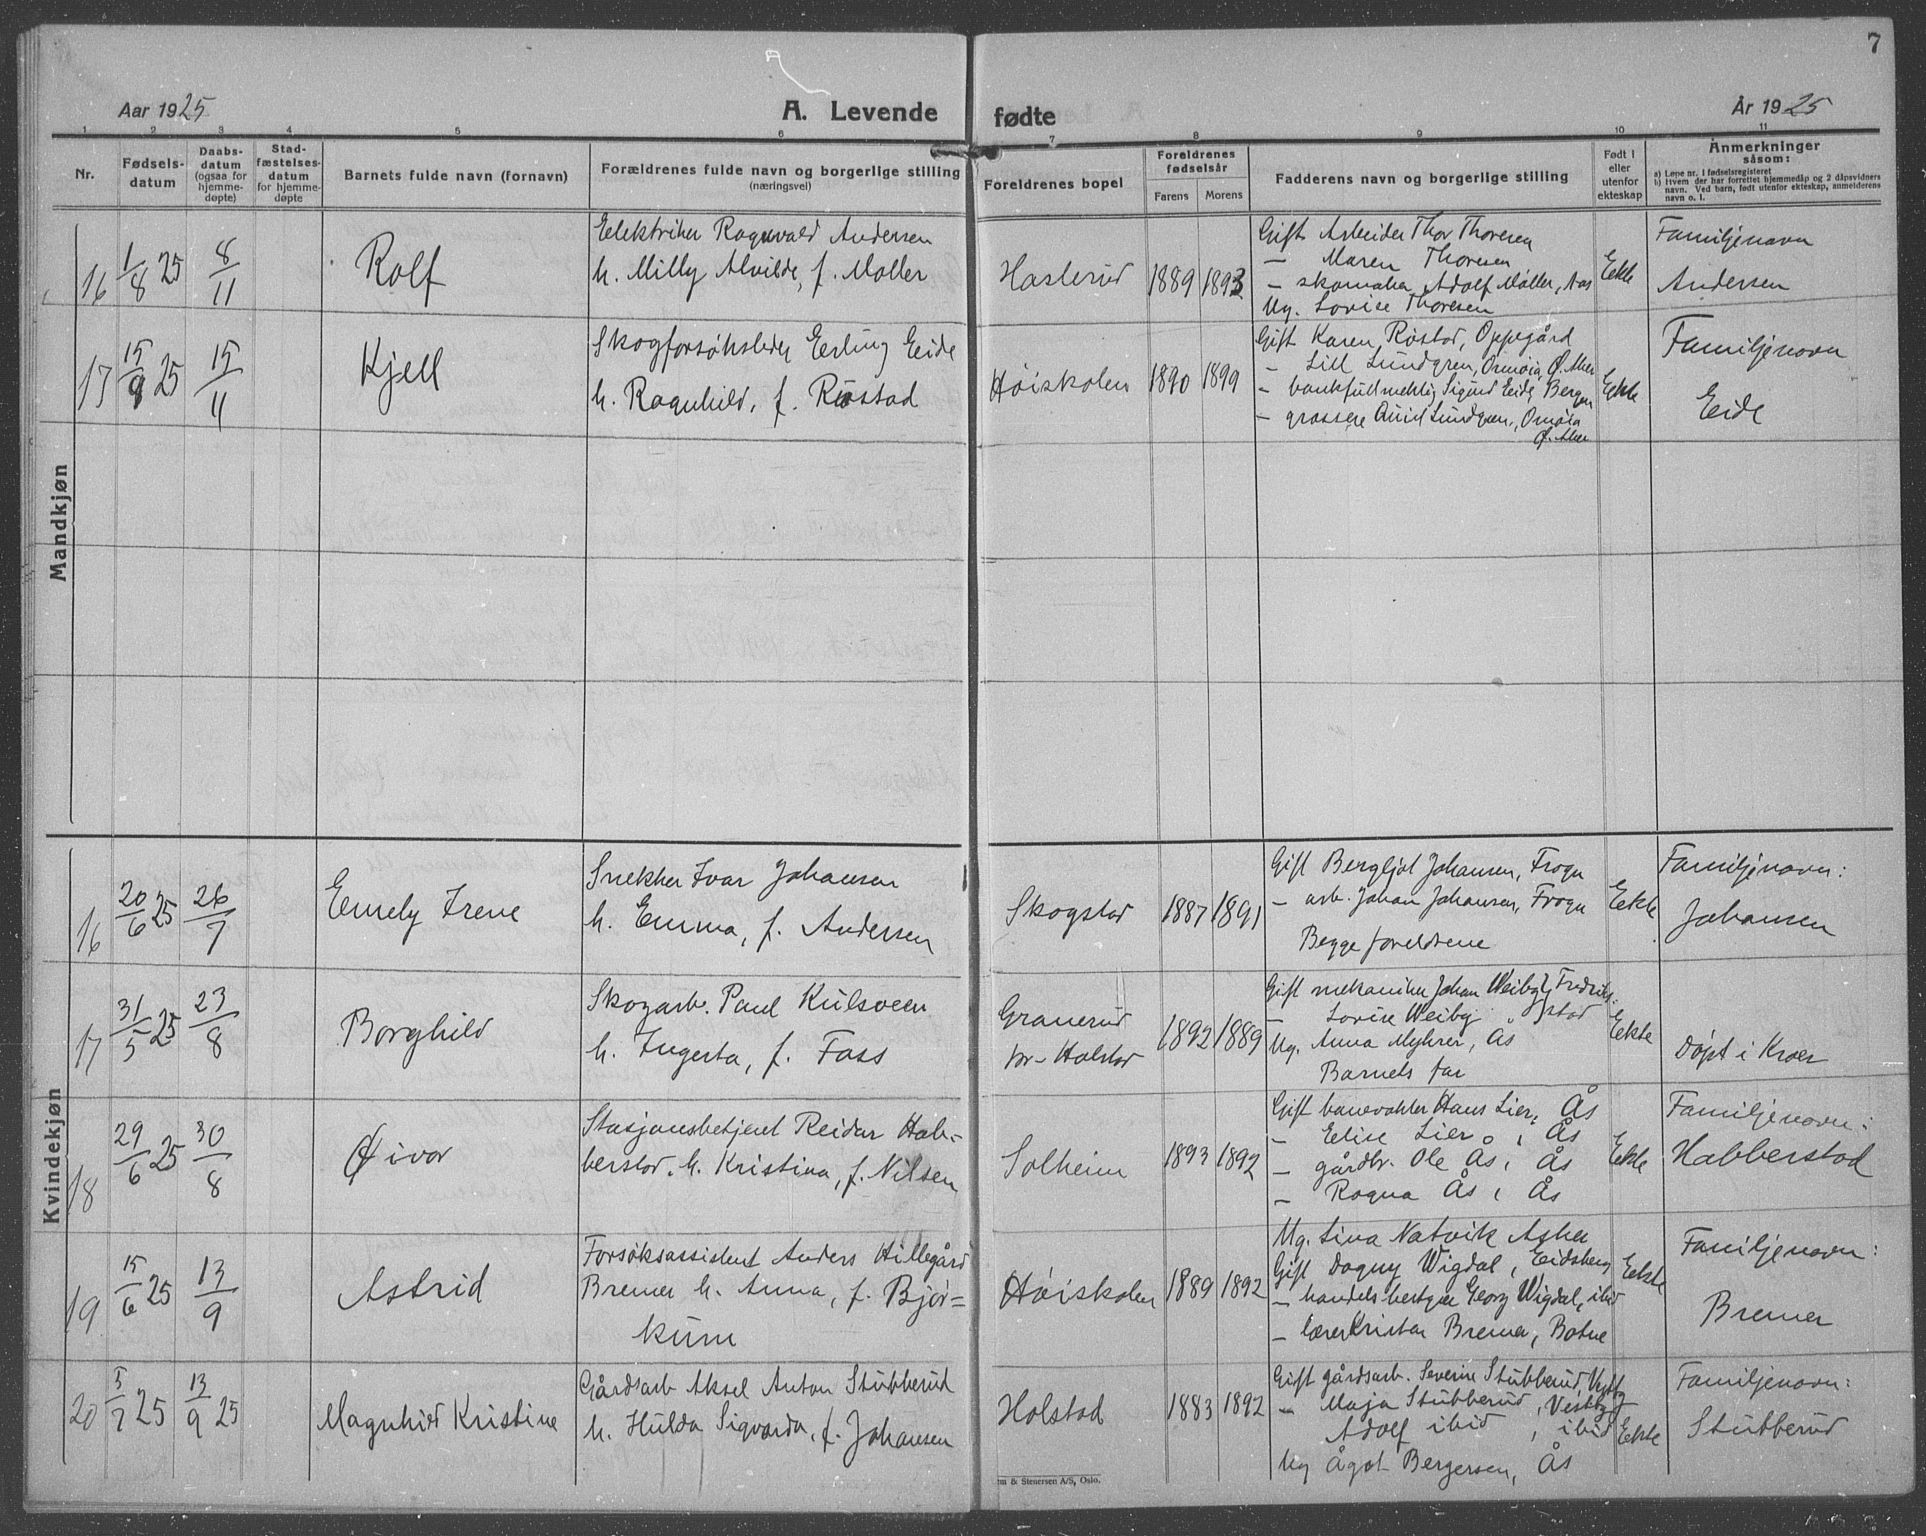 7
Aar 1925
A. Levende fødte
År 1925
1 2 3 4 5 6 7 8 9 10 11
Nr.
Fødsels-
datum
Daabs-
datum
(ogsaa for
hjemme-
døpte)
Stad-
fæstelses-
datum
for hjemme-
døpte
Barnets fulde navn (fornavn)
Forældrenes fulde navn og borgerlige stilling
(næringsvei)
Foreldrenes bopel
Foreldrenes
fødselsår
Farens Morens
Fadderens navn og borgerlige stilling
Født i
eller
utenfor
ekteskap
Anmerkninger
såsom:
a) Løpe nr. i fødselsregisteret
b) Hvem der har forrettet hjemmedåp og 2 dåpsvidners
navn. Ved barn, født utenfor ekteskap, anmelderens
navn o. l.
Mandkjøn
16 1/8 25 8/11
Rolf
Elektriker Ragnvald Andersen
h. Milly Alvilde, f. Møller
Haslerud 1889 1893
Gift Arbeider Thor Thoresen
– Maren Thoresen
– skomaker Adolf Møller, Aas
Ug. Lovise Thoresen
Ekte
Familjenavn
Andersen
17 15/9 25 15/11
Kjell
Skogforsøksleder Erling Eide
h. Ragnhild, f. Røstad
Høiskolen 1890 1899
Gift Karen Røstad, Oppegård
– Lill Lundgren, Ormøia, Ø. Aker
– bankfullmektig Sigurd Eide, Bergen
– grosserer Lundgren, Ormøia
Ø. Aker
Ekte
Familjenavn
Eide
Kvindekjøn
16 20/6 25 26/7
Emely Irene
Snekker Ivar Johansen
h. Emma, f. Andersen
Skogstad 1887 1891
Gift Bergljot Johansen, Frogn
– arb. Johan Johansen, Frogn
Begge foreldrene
Ekte
Familjenavn:
Johansen
17 31/5 25 23/8
Borghild
Skogarb. Paul Kulsveen
h. Ingerta, f. Foss
Granerud
pr. Holstad
1892 1889
Gift mekaniker Johan Weiby, Fredrik-
– Lovise Weiby " stad
Ug. Anna Myhrer, Ås
Barnets far
Ekte
Døpt i Kroer
18 29/6 25 30/8
Øivor
Stasjonsbetjent Reidar Hab-
berstad. h. Kristina, f. Nilsen
Solheim 1893 1892
Gift banevokter Hans Lier, Ås
– Elise Lier, Ås
– gårdbr. Ole Ås, Ås
– Ragna Ås, Ås
Ekte
Familjenavn:
Habberstad
19 15/6 25 13/9
Astrid
Forsøksassistent Anders Hillegård
Bremer h. Anna, f. Bjør-
kum
Høiskolen 1889 1892
Ug. Lina Natvik Asker
Gift Dagny Wigdal, Eidsberg
– handelsbestyrer Georg Wigdal, ibid
– lærer Kristen Bremer, Botne
Ekte
Familjenavn:
Bremer
20 5/7 25 13/9 25
Magnhild Kristine
Gårdsarb Aksel Anton Stubberud
h. Hulda Sigvarda, f. Johansen
Holstad 1883 1892
Gift gårdsarb. Severin Stubberud, Vestby
– Maja Stubberud, Vestby
Adolf ibid, ibid
Ug Ågot Bergersen, Ås
Ekte
Familjenavn:
Stubberud
& Stenersen A/S, Oslo.